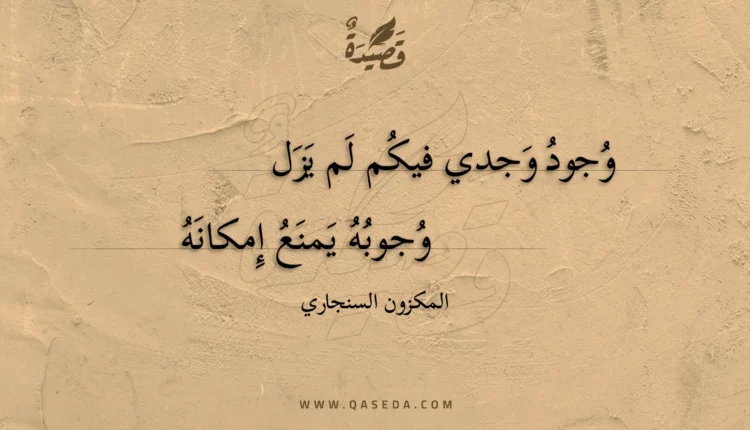 قَصِيدَةٌ
وُجودُ وَجدي فيكُم لَم يَزَل
وُجوبُهُ يَمنَعُ إِمكانَهُ
المكزون السنجاري
WWW.QASEDA.COM